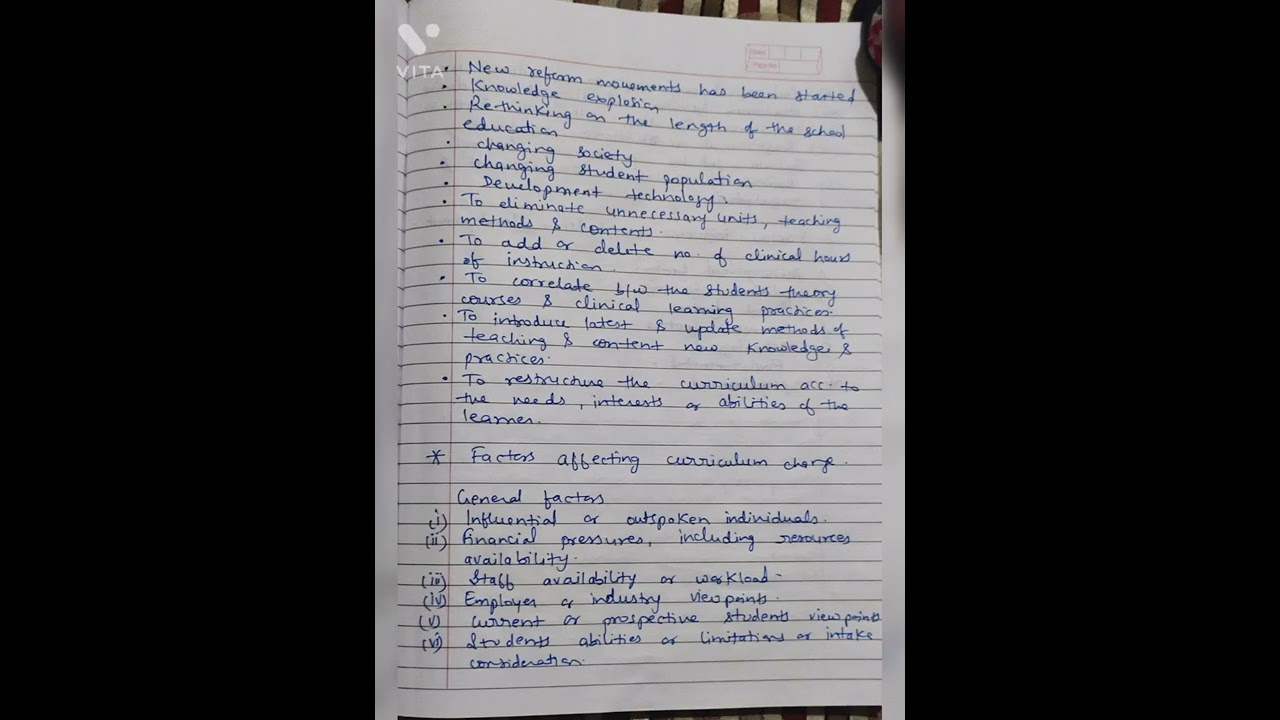 VITA
New reform movements has been started
Knowledge explosion
Re-thinking on the length of the school
education
changing society
changing student population
Development technology.
To eliminate unnecessary units, teaching
methods & contents.
To add or delete no. of clinical hours
of instruction.
To correlate b/w the students theory
courses & clinical learning practices.
To introduce latest & update methods of
teaching & content new knowledge &
practices.
To restructure the curriculum acc. to
the needs, interests or abilities of the
learner.
* Factors affecting curriculum change.
General factors
(i) Influential or outspoken individuals.
(ii) Financial pressures, including resources
availability.
(iii) Staff availability or workload.
(iv) Employer or industry viewpoints.
(v) current or prospective students viewpoints
(vi) Students abilities or limitations or intake
consideration.